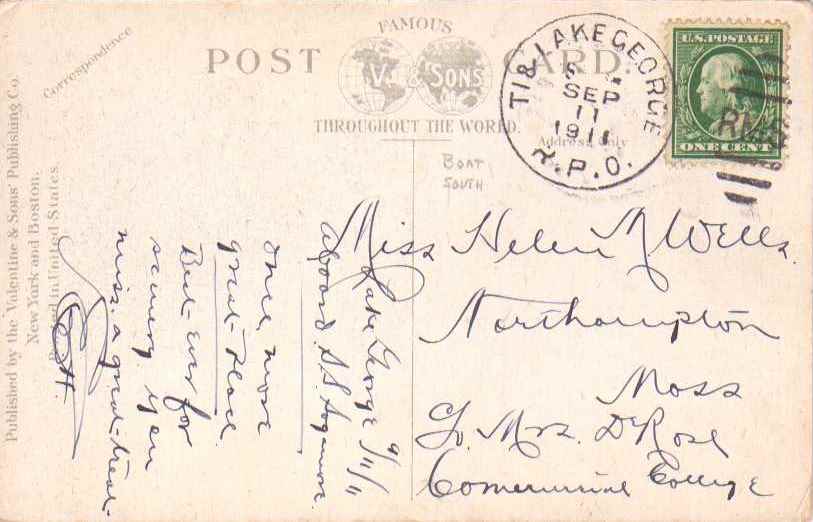 FAMOUS
POST CARD.
V. & SONS
THROUGHOUT THE WORLD.
Address Only
Correspondence
BOAT
SOUTH
TI & LAKE GEORGE
SEP
11
1911
R.P.O.
U.S. POSTAGE
ONE CENT
RMS
Published by the Valentine & Sons' Publishing Co.
New York and Boston.
Printed in United States.
Lake George 9/11/11
aboard S.S. Sagamore.
Once more
great place
But ever for
scenery you
miss a great treat.
H.
Miss Helen M Wells.
Northampton
Mass
℅ Mrs. DeRose
Commercial College